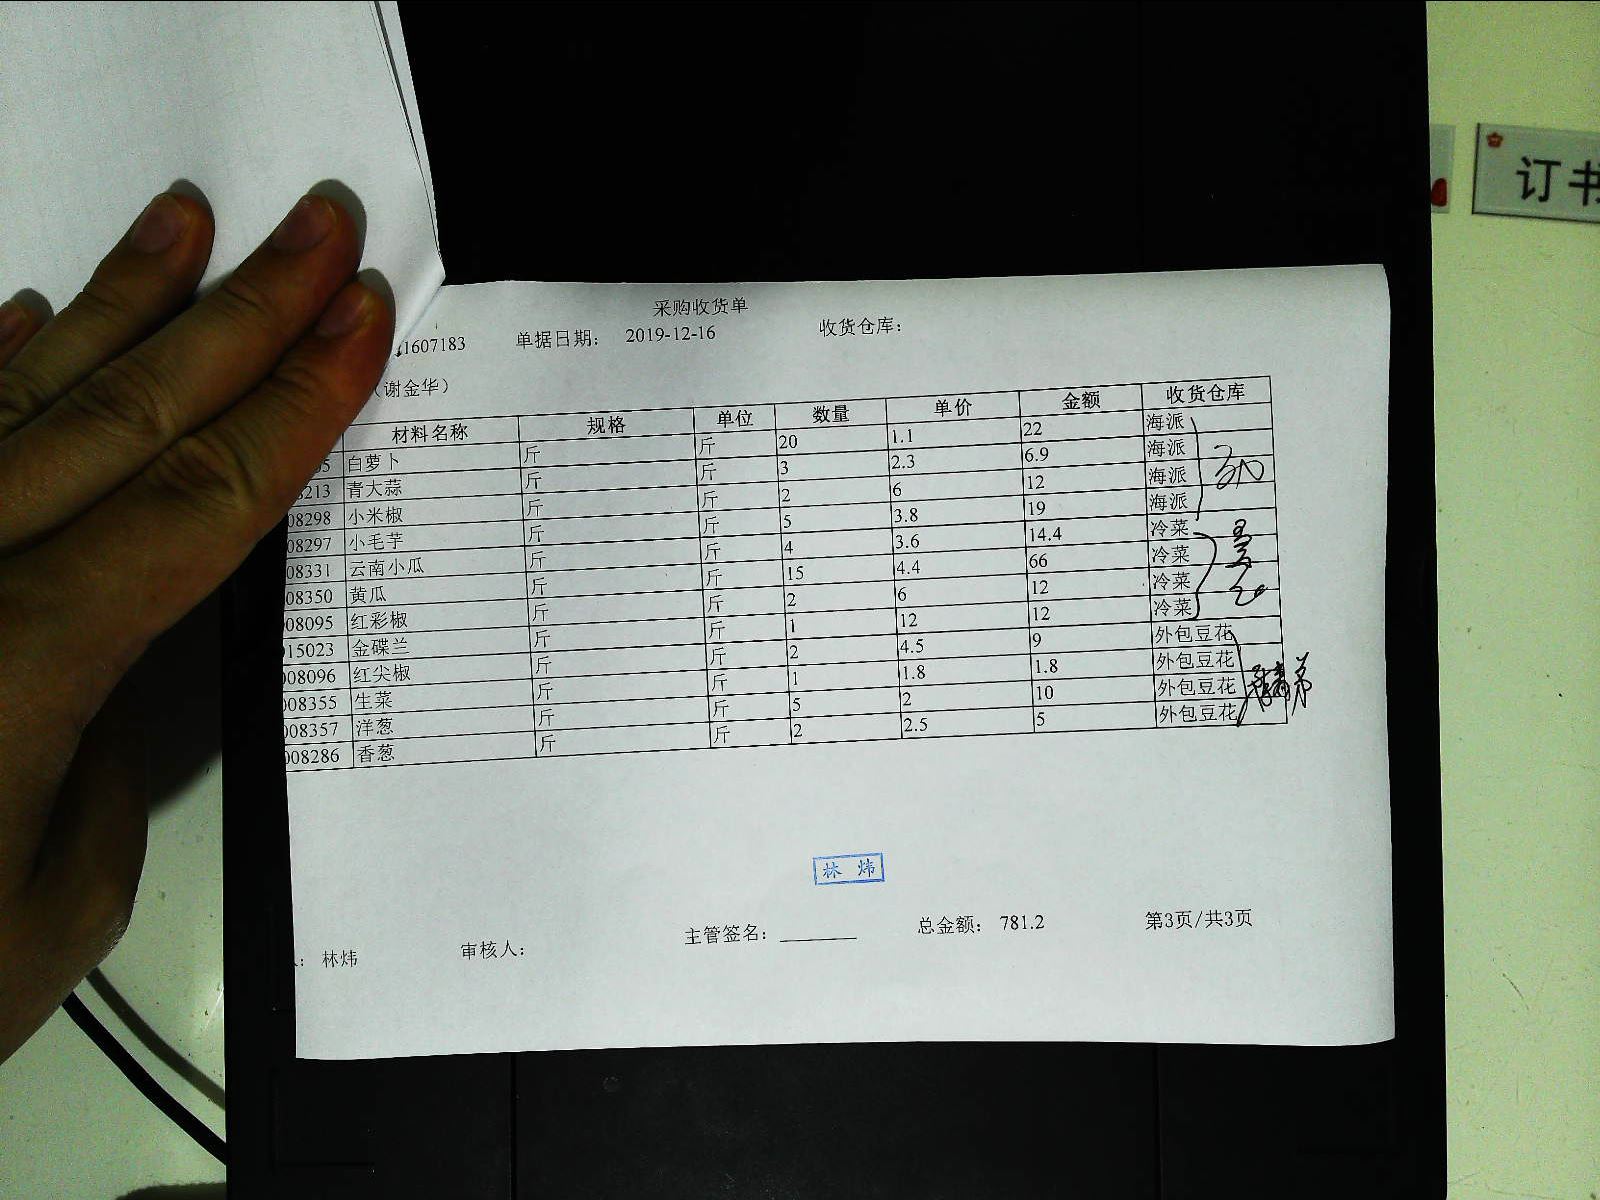 订书
采购收货单
1607183 单据日期： 2019-12-16 收货仓库：
（谢金华）
材料名称 规格 单位 数量 单价 金额 收货仓库
05 白萝卜 斤 斤 20 1.1 22 海派
8213 青大蒜 斤 斤 3 2.3 6.9 海派
08298 小米椒 斤 斤 2 6 12 海派
08297 小毛芋 斤 斤 5 3.8 19 海派
08331 云南小瓜 斤 斤 4 3.6 14.4 冷菜
08350 黄瓜 斤 斤 15 4.4 66 冷菜
08095 红彩椒 斤 斤 2 6 12 冷菜
015023 金碟兰 斤 斤 1 12 12 冷菜
008096 红尖椒 斤 斤 2 4.5 9 外包豆花
008355 生菜 斤 斤 1 1.8 1.8 外包豆花
008357 洋葱 斤 斤 5 2 10 外包豆花
008286 香葱 斤 斤 2 2.5 5 外包豆花
林 炜
林炜 审核人： 主管签名： 总金额： 781.2 第3页/共3页